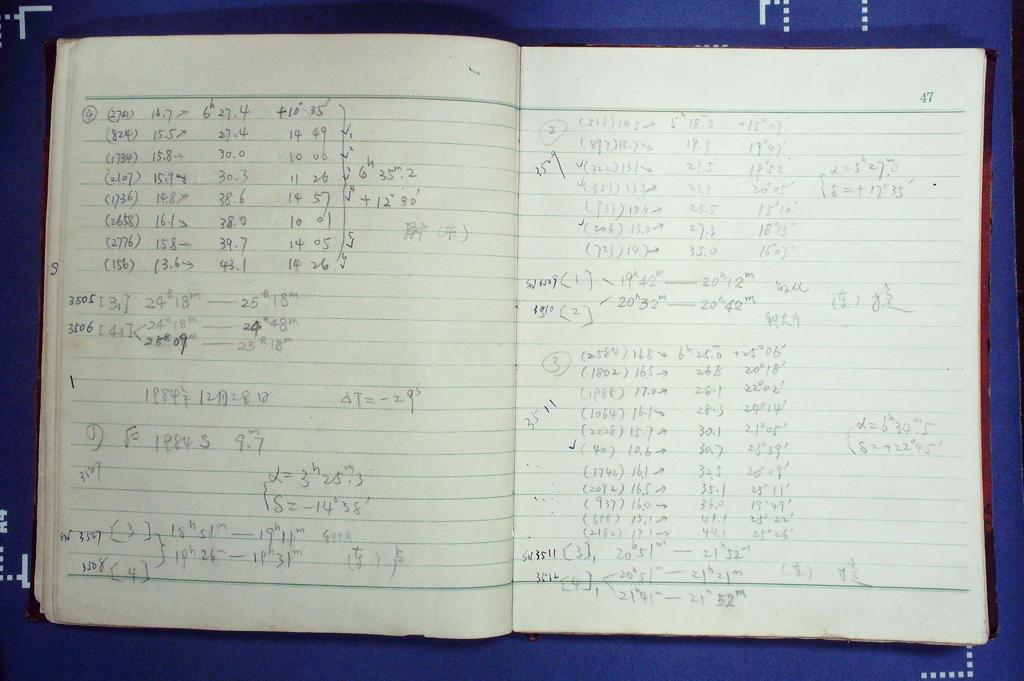 ④ (2741) 16.7→ 6ʰ 27.4 +10° 35′
(824) 15.5→ 27.4 14 49
(1734) 15.8→ 30.0 10 00
(2107) 15.9→ 30.3 11 26 6ʰ 35ᵐ.2
(1736) 14.8→ 38.6 14 57 +12°30′
(2658) 16.1→ 38.0 10 01
(2776) 15.8→ 39.7 14 05
(156) 13.6→ 43.1 14 26
S
3505 [3,] 24ʰ18ᵐ — 25ʰ18ᵐ
3506 [4,] 24ʰ18ᵐ — 24ʰ48ᵐ
25ʰ09ᵐ — 25ʰ18ᵐ
1984年12月28日 ΔT=-29ˢ
1) 1984 S 9ᵐ.7
3507
α=3ʰ25ᵐ.3
δ=-14°38′
3507 [3] 18ʰ51ᵐ — 19ʰ11ᵐ
19ʰ26ᵐ — 19ʰ31ᵐ
3508 [4]
47
② (518) 5ʰ 18ᵐ.5 +15°07′
(897) 15.7→ 19.3 19°47′
3509 (322) 13.1→ 21.5 19°52′ α=5ʰ27ᵐ.0
(351) 13.1→ 23.1 20°05′ δ=+17°35′
(933) 15.8→ 25.5 15°10′
(206) 13.0→ 27.3 18°13′
(723) 14.7→ 35.0 16°03′
3509 [1] 19ʰ42ᵐ — 20ʰ12ᵐ
3510 [2] 20ʰ32ᵐ — 20ʰ42ᵐ
③ (2584) 16.8→ 6ʰ25ᵐ.0 +25°06′
(1802) 16.5→ 26.8 20°18′
(1988) 17.0→ 28.1 22°02′
3511 (1064) 16.1→ 28.3 24°14′
(2228) 15.7→ 30.1 21°05′ α=6ʰ34ᵐ.5
(40) 10.6→ 30.7 23°39′ δ=+22°45′
(1742) 16.1→ 32.5 20°09′
(2092) 16.5→ 35.1 25°11′
(937) 16.0→ 36.0 19°49′
(688) 15.1→ 41.1 25°22′
(2182) 17.1→ 44.1 25°26′
3511 [3], 20ʰ51ᵐ — 21ʰ52ᵐ
3512 [4], 20ʰ51ᵐ — 21ʰ21ᵐ
21ʰ41ᵐ — 21ʰ52ᵐ